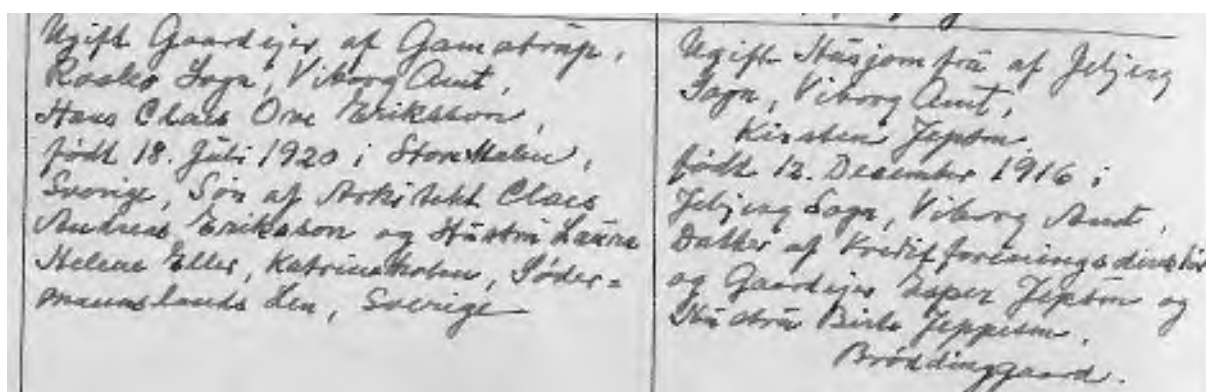 Ugift Gaardejer af Gamstrup,
Sogn, Viborg Amt,
Hans Claes Ove Eriksson,
født 18. Juli 1920 i Stockholm,
Sverige, Søn af Arkitekt Claes
Andreas Eriksson og Hustru Laura
Helene Eller, Katrineholm, Söder=
manslands Len, Sverige
Ugift Husjomfru af Jebjerg
Sogn, Viborg Amt,
Kirsten Jepsen.
født 12. December 1916 i
Jebjerg Sogn, Viborg Amt,
Datter af Kreditforeningsdirektør
og Gaardejer Esper Jepsen og
Hustru Birte Jeppesen.
Brøddinggaard.